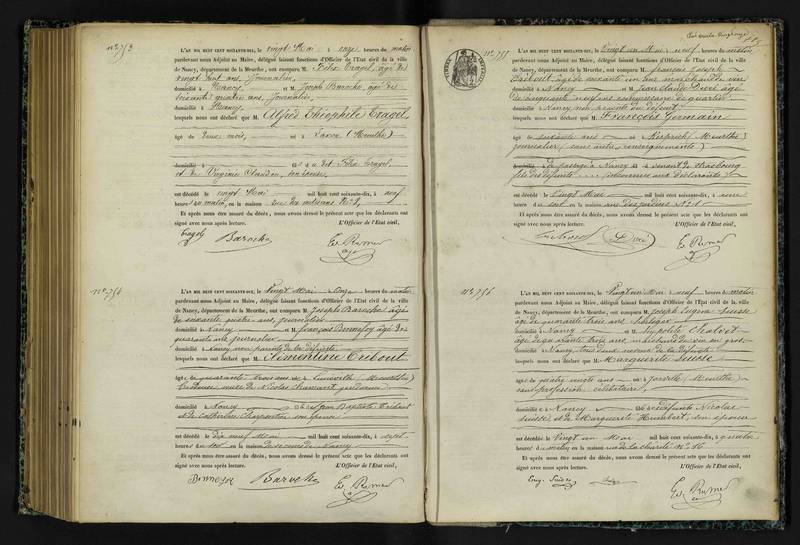 N° 753
L'AN MIL HUIT CENT SOIXANTE-DIX, le vingt Mai à onze heures du matin
pardevant nous Adjoint au Maire, délégué faisant fonctions d'Officier de l'Etat civil de la ville
de Nancy, département de la Meurthe, ont comparu M. Félix Tragel, âgé de
vingt huit ans, Journalier,
domicilié à Nancy, et M. Joseph Baroche, âgé de
soixante quatre ans, Journalier,
domicilié à Nancy,
lesquels nous ont déclaré que M. Alfred Théophile Tragel
âgé de deux mois, né à Laxou (Meurthe)
domicilié à fils de Félix Tragel,
et de Virginie Claudon, son épouse,
est décédé le vingt Mai mil huit cent soixante-dix, à neuf
heures du matin, en la maison rue
Et après nous être assuré du décès, nous avons dressé le présent acte que les déclarants ont
signé avec nous après lecture. L'Officier de l'Etat civil,
Tragel Baroche
N° 754
L'AN MIL HUIT CENT SOIXANTE-DIX, le Vingt Mai onze heures du matin
pardevant nous Adjoint au Maire, délégué faisant fonctions d'Officier de l'Etat civil de la ville
de Nancy, département de la Meurthe, ont comparu M. Joseph Baroche âgé
de soixante quatre ans, journalier
domicilié à Nancy et M. François Bonnefoy âgé de
quarante ans journalier
domicilié à Nancy non parents de la défunte
lesquels nous ont déclaré que M. Clémentine Tribout
âgée de quarante trois ans née à Lunéville (Meurthe)
veuve de Nicolas gendarme
domiciliée à Nancy fille de Jean Baptiste Tribout
et de Catherine Charpentier son épouse
est décédée le dix neuf Mai mil huit cent soixante-dix, à sept
heures du soir en la maison de secours de Nancy
Et après nous être assuré du décès, nous avons dressé le présent acte que les déclarants ont
signé avec nous après lecture. L'Officier de l'Etat civil,
Baroche
N° 755
L'AN MIL HUIT CENT SOIXANTE-DIX, le Vingt un Mai neuf heures du matin
pardevant nous Adjoint au Maire, délégué faisant fonctions d'Officier de l'Etat civil de la ville
de Nancy, département de la Meurthe, ont comparu M. françois Joseph
âgé de soixante un ans marchand de vin
domicilié à Nancy et M. Jean Claude Divré âgé
de cinquante neuf ans commissaire de quartier
domicilié à Nancy non parents du défunt
lesquels nous ont déclaré que M. François Germain
âgé de soixante ans né à Kerprich (Meurthe)
journalier (sans autre renseignement)
domicilié de passage à Nancy venant de Strasbourg
fils de défunts inconnus aux déclarants
est décédé le Vingt Mai mil huit cent soixante-dix, à onze
heures du soir en la maison rue des jardins N° 1
Et après nous être assuré du décès, nous avons dressé le présent acte que les déclarants ont
signé avec nous après lecture. L'Officier de l'Etat civil,
Divré
N° 756
L'AN MIL HUIT CENT SOIXANTE-DIX, le Vingt un Mai neuf heures du matin
pardevant nous Adjoint au Maire, délégué faisant fonctions d'Officier de l'Etat civil de la ville
de Nancy, département de la Meurthe, ont comparu M. Joseph Eugène Suisse
âgé de quarante trois ans
domicilié à Nancy et M. hypolite Chalvet
âgé de quarante trois ans marchand de vin en gros
domicilié à Nancy, tous deux de la défunte
lesquels nous ont déclaré que M. Marguerite Suisse
âgée de quatre vingts ans née à Jarville (Meurthe)
sans profession célibataire
domiciliée à Nancy fille de défunts Nicolas
Suisse et de Marguerite Humbert, son épouse
est décédée le Vingt un Mai mil huit cent soixante-dix, à quatre
heures du matin en la maison rue de la charité N° 16
Et après nous être assuré du décès, nous avons dressé le présent acte que les déclarants ont
signé avec nous après lecture. L'Officier de l'Etat civil,
Eug. Suisse